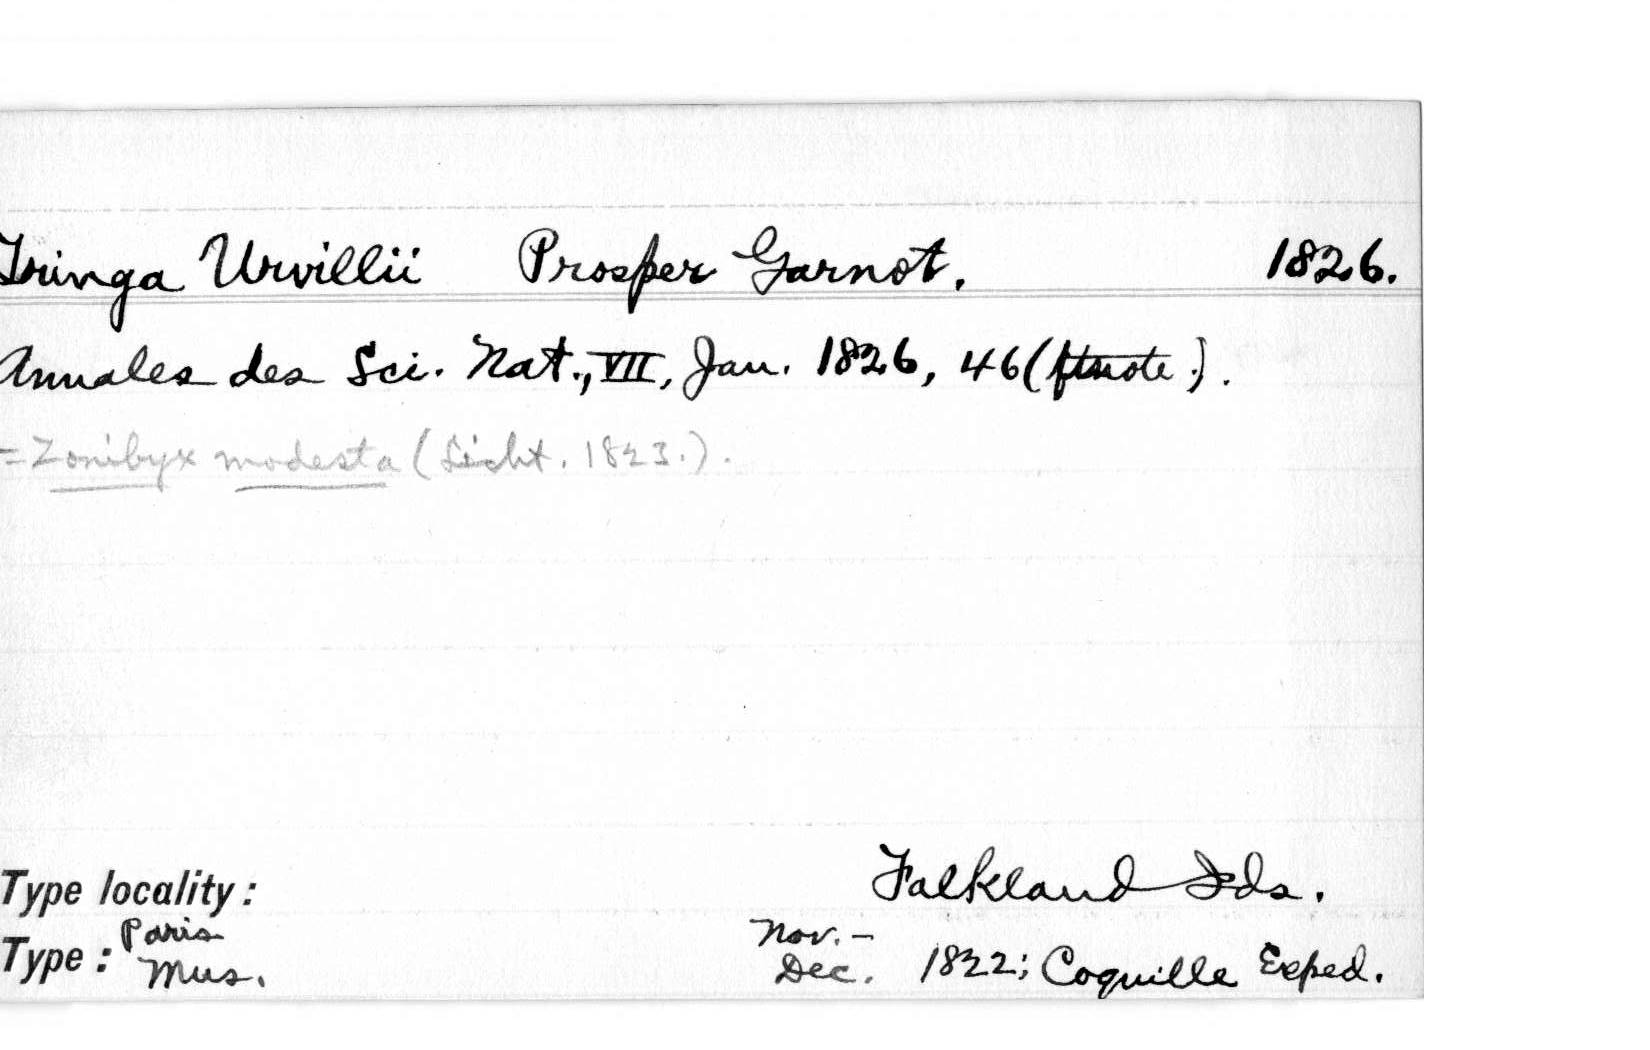 Tringa Urvillii Prosper Garnot. 1826.
Annales des Sci. Nat., VII, Jan. 1826, 46 (ftnote.).
= Zonibyx modesta (Licht. 1823.).
Type locality: Falkland Ids.
Type: Paris Mus. Nov.- Dec. 1822; Coquille Exped.